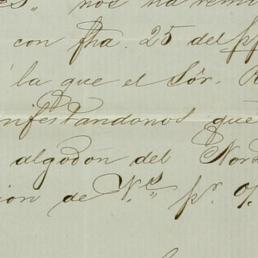 nos ha remi
con fha. 25 del pp
la que el Sôr. R
nifestandonos que
algodon del Nord
ion de V.s pr. %